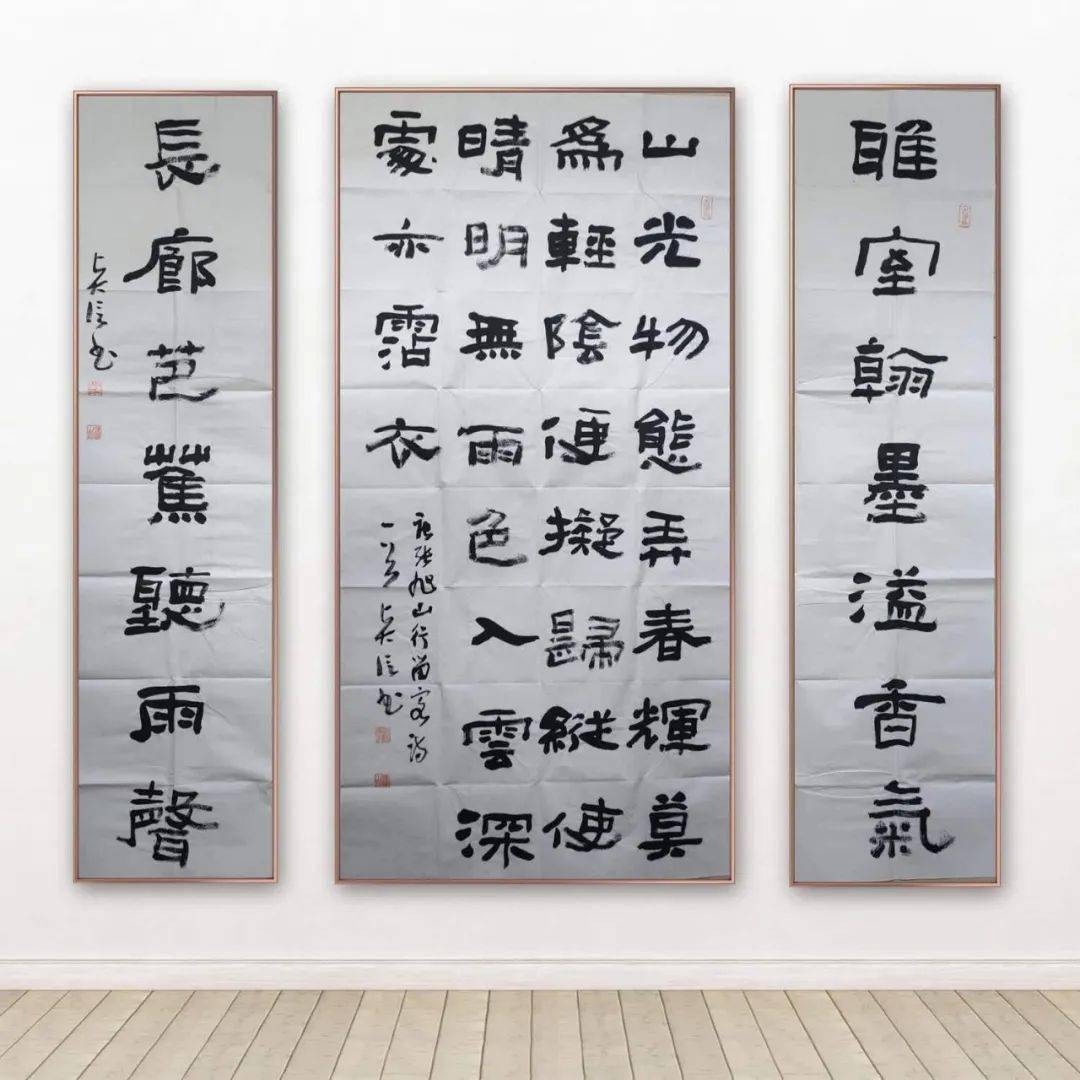 雅室翰墨溢香氣
山光物態弄春輝莫
爲輕陰便擬歸縱使
晴明無雨色入雲深
處亦霑衣
唐張旭山行留客詩
一首 吳信书
長廊芭蕉聽雨聲
吳信书